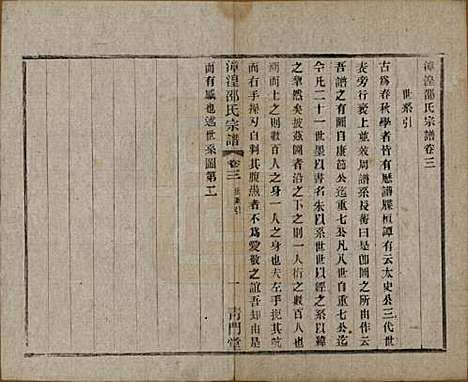 漳湟邵氏宗譜卷三
世系引
古爲春秋學者皆有歷譜牒桓譚有云太史公三代世
表旁行邪上並效周譜系長蘅曰是卽圖之所由作云
吾譜之有圖自康節公迄重七公凡八世自重七公迄
今凡二十一世墨以書名朱以系世世經之
之犂然矣披茲圖者沿之下之則一人衍之數百人也
溯而上之則數百人之身一人之身也夫左手挾其吭
而右手操刃自刺其腹愚者不爲愛敬之誼吾知由是
而有感也述世系圖第三
漳湟邵氏宗譜
卷三
世系引
一
青門堂